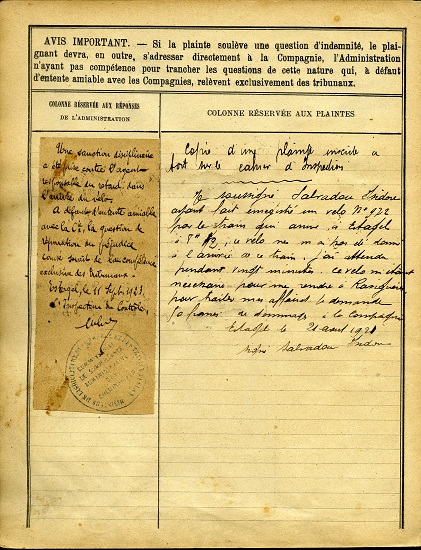 AVIS IMPORTANT. — Si la plainte soulève une question d'indemnité, le plai-
gnant devra, en outre, s'adresser directement à la Compagnie, l'Administration
n'ayant pas compétence pour trancher les questions de cette nature qui, à défaut
d'entente amiable avec les Compagnies, relèvent exclusivement des tribunaux.
COLONNE RÉSERVÉE AUX RÉPONSES
DE L'ADMINISTRATION
Une sanction disciplinaire
a été prise contre l'agent
responsable du retard dans
l'arrivée du vélo.
A défaut d'entente amiable
avec la Cie, la question de
réparation du préjudice
causé serait de la compétence
exclusive des tribunaux.
Estagel, le 11 Septbre 1921.
l'Inspecteur du Contrôle,
COLONNE RÉSERVÉE AUX PLAINTES
Copie d'une plainte inscrite à
tort sur le cahier d'Inspection
Je soussigné Salvadou Isidore
ayant fait enregistré un vélo N° 922
par le train qui arrive à Estagel
à 7h 42, ce vélo ne m'a pas été donné
à l'arrivée de ce train, j'ai attendu
pendant vingt minutes. ce vélo m'étant
nécessaire pour me rendre à
pour traiter mes affaires je demande
francs de dommages à la Compagnie
Estagel le 21 août 1921
signé Salvadou Isidore